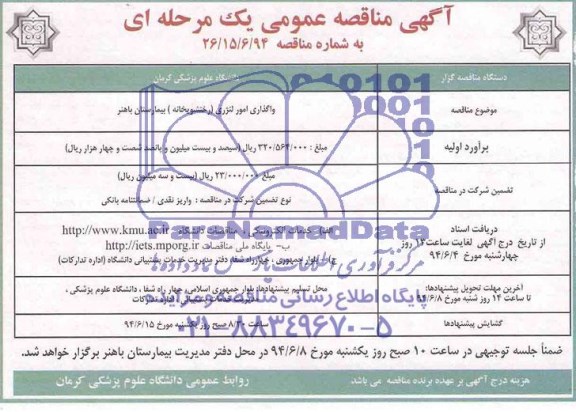 آگهی مناقصه عمومی یک مرحله ای
به شماره مناقصه ۲۶/۱۵/۶/۹۴
دستگاه مناقصه گزار
دانشگاه علوم پزشکی کرمان
موضوع مناقصه
واگذاری امور لنژری (رختشویخانه) بیمارستان باهنر
برآورد اولیه
مبلغ: ۳۲۰/۵۶۴/۰۰۰ ریال (سیصد و بیست میلیون و پانصد شصت و چهار هزار ریال)
تضمین شرکت در مناقصه
مبلغ ۲۳/۰۰۰/۰۰۰ ریال (بیست و سه میلیون ریال)
نوع تضمین شرکت در مناقصه: واریز نقدی / ضمانتنامه بانکی
دریافت اسناد
از تاریخ درج آگهی لغایت ساعت ۱۴ روز
چهارشنبه مورخ ۹۴/۶/۴
الف- خدمات الکترونیکی، مناقصات دانشگاه http://www.kmu.ac.ir
ب- پایگاه ملی مناقصات http://iets.mporg.ir
ج) بلوار جمهوری، چهارراه شفا، دفتر مدیریت خدمات پشتیبانی دانشگاه (اداره تدارکات)
آخرین مهلت تحویل پیشنهادها:
تا ساعت ۱۴ روز شنبه مورخ
محل تسلیم پیشنهادها: بلوار جمهوری اسلامی، چهار راه شفا، دانشگاه علوم پزشکی،
گشایش پیشنهادها
ساعت ۸/۳۰ صبح روز یکشنبه مورخ ۹۴/۶/۱۵
ضمناً جلسه توجیهی در ساعت ۱۰ صبح روز یکشنبه مورخ ۹۴/۶/۸ در محل دفتر مدیریت بیمارستان باهنر برگزار خواهد شد.
هزینه درج آگهی بر عهده برنده مناقصه می باشد.
روابط عمومی دانشگاه علوم پزشکی کرمان
ParsNamadData
مرکز فرآوری اطلاعات پارس نماد داده ها
پایگاه اطلاع رسانی مناقصه و مزایده
۰۲۱-۸۸۳۴۹۶۷۰-۵